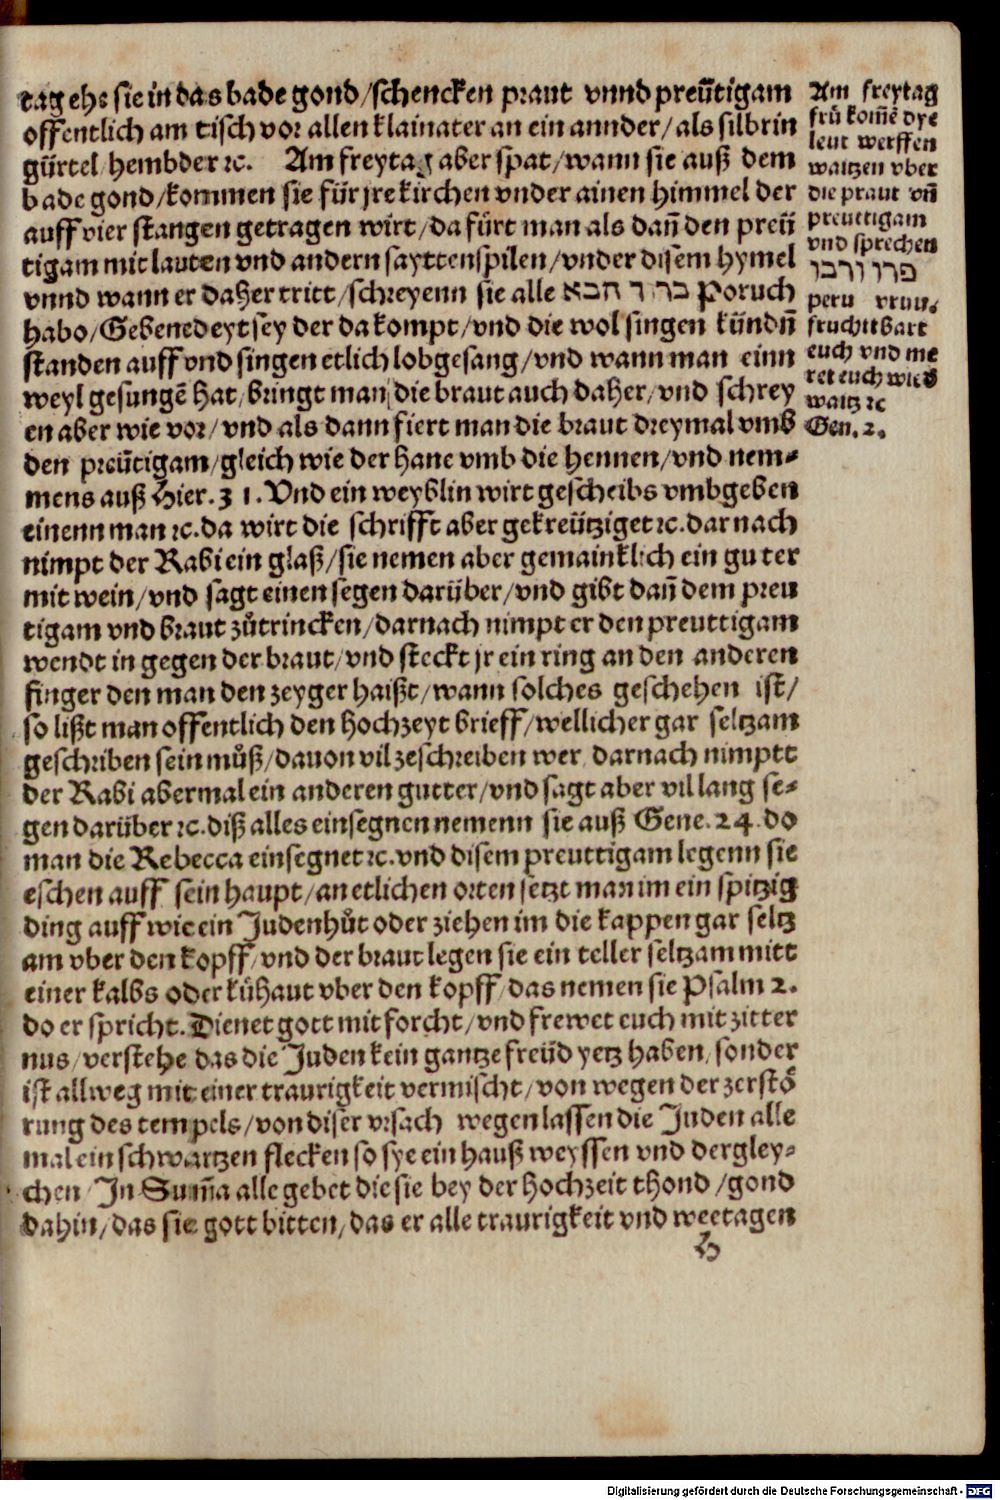 tag ehe sie in das bade gond/schencken praut vnnd preu̇tigam
offentlich am tisch vor allen klainater an ein annder/als silbrin
gürtel/hembder ꝛc. Am freytag aber spat/wann sie auß dem
bade gond/kommen sie für jre kirchen vnder ainen himmel der
auff vier stangen getragen wirt/da fürt man als dañ den preü
tigam mit lauten vnd andern sayttenspilen/vnder disem hymel
vnnd wann er daher tritt/schreyenn sie alle ברוך הבא Poruch
habo/Gebenedeyt sey der da kompt/vnd die wol singen kündñ
standen auff vnd singen etlich lobgesang/vnd wann man einn
weyl gesungē hat/bringt man die braut auch daher/vnd schrey
en aber wie vor/vnd als dann fiert man die braut dreymal vmb
den preütigam/gleich wie der hane vmb die hennen/vnd nem⸗
mens auß Hier. 31. Vnd ein weyblin wirt gescheibs vmbgeben
einenn man ꝛc. da wirt die schrifft aber gekreütziget ꝛc. dar nach
nimpt der Rabi ein glaß/sie nemen aber gemainklich ein guter
mit wein/vnd sagt einen segen darüber/vnd gibt dañ dem preu
tigam vnd braut zůtrincken/darnach nimpt er den preuttigam
wendt in gegen der braut/vnd steckt jr ein ring an den anderen
finger den man den zeyger haißt/wann solches geschehen ist/
so lißt man offentlich den hochzeyt brieff/wellicher gar seltzam
geschriben sein můß/dauon vil zeschreiben wer/darnach nimptt
der Rabi abermal ein anderen gutter/vnd sagt aber vil lang se⸗
gen darüber ꝛc. diß alles einsegnen nemenn sie auß Gene. 24. do
man die Rebecca einsegnet ꝛc. vnd disem preuttigam legenn sie
eschen auff sein haupt/an etlichen orten setzt man im ein spitzig
ding auff wie ein Judenhůt oder ziehen im die kappen gar seltz
am vber den kopff/vnd der braut legen sie ein teller seltzam mitt
einer kalbs oder kůhaut vber den kopff/das nemen sie Psalm 2.
do er spricht. Dienet gott mit forcht/vnd frewet euch mit zitter
nus/verstehe das die Juden kein gantze freüd yetz haben/sonder
ist allweg mit einer traurigkeit vermischt/von wegen der zerstö
rung des tempels/von diser vrsach wegen lassen die Juden alle
mal ein schwartzen flecken so sye ein hauß weyssen vnd dergley⸗
chen/In Sum̃a alle gebet die sie bey der hochzeit thond/gond
dahin/das sie gott bitten/das er alle traurigkeit vnd weetagen
H
Am freytag
frů kom̃e dye
leut werffen
waitzen vber
die praut vñ
preuttigam
vnd sprechen
פרו ורבו
peru vruu.
fruchtbart
euch vnd me
ret euch wie d
waitz ꝛc
Gen. 2.
Digitalisierung gefördert durch die Deutsche Forschungsgemeinschaft - DFG